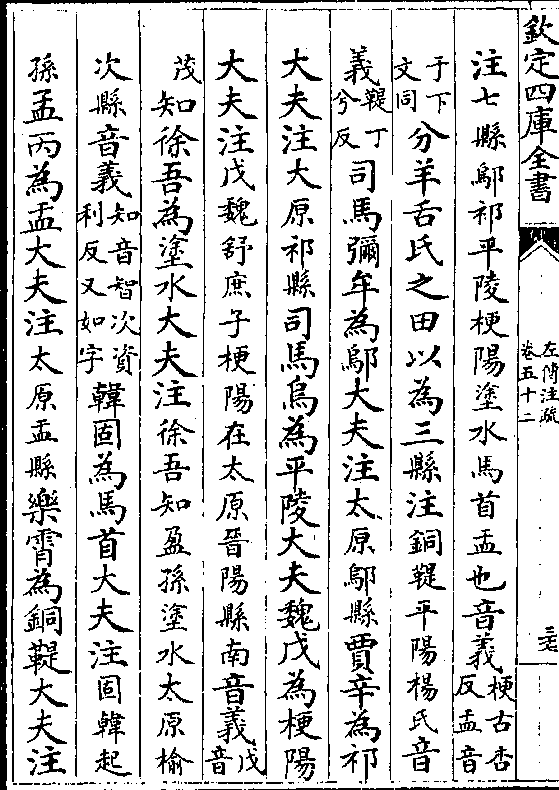 欽定四庫全書
左傳注疏
卷五十二
三七
注七縣鄔祁平陵梗陽塗水馬首盂也音義梗古杏反盂音
于下文同分羊舌氏之田以為三縣注銅鞮平陽楊氏音
義鞮丁兮反司馬彌牟為鄔大夫注太原鄔縣賈辛為祁
大夫注太原祁縣司馬烏為平陵大夫魏戊為梗陽
大夫注戊魏舒庶子梗陽在太原晉陽縣南音義戊音
茂知徐吾為塗水大夫注徐吾知盈孫塗水太原榆
次縣音義知音智次資利反又如字韓固為馬首大夫注固韓起
孫孟丙為盂大夫注太原盂縣樂霄為銅鞮大夫注